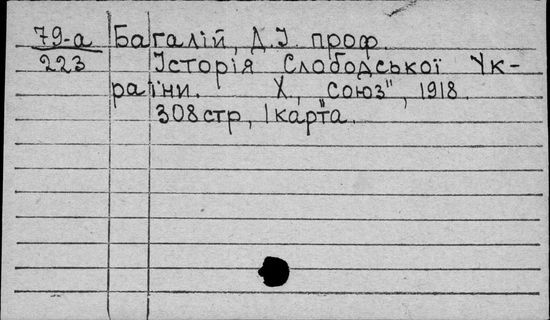 79-а Багалій, Д.І. проф.
223 Історія Слободської Ук-
раїни. Х., "Союз", 1918.
308стр, 1карта.